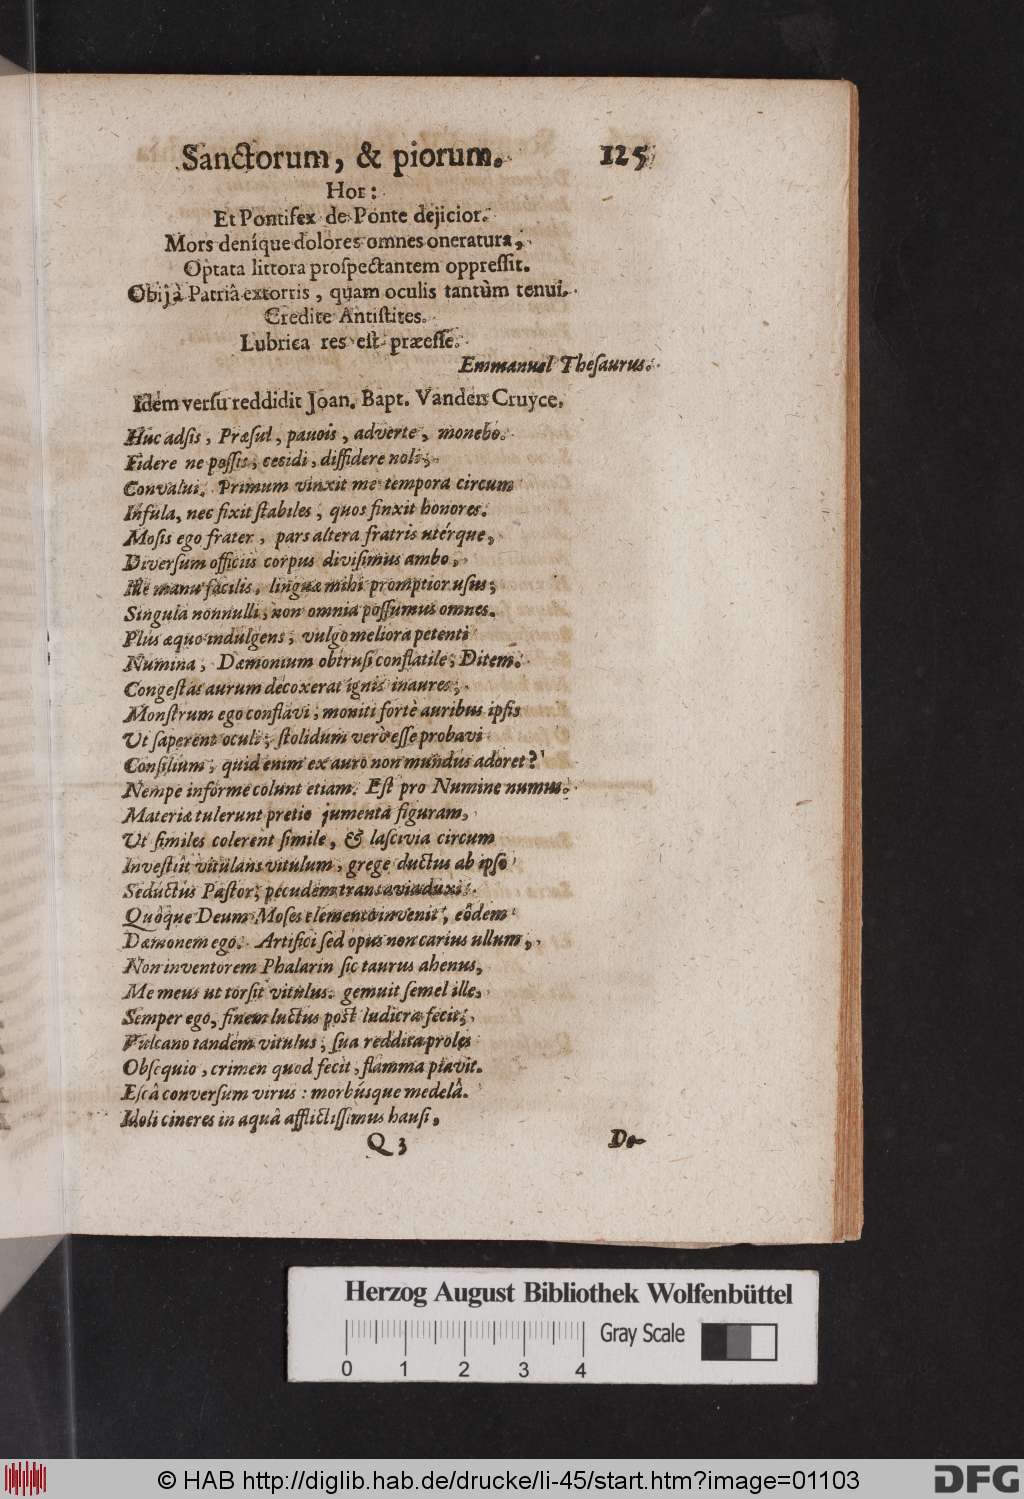 Sanctorum, & piorum. 125
Hor:
Et Pontifex de Ponte dejicior.
Mors deníque dolores omnes oneratura,
Optata littora prospectantem oppressit.
Obij à Patriâ extorris, quam oculis tantùm tenui.
Credite Antistites.
Lubrica res est præesse.
Emmanuel Thesaurus.
Idem versu reddidit Joan. Bapt. Vanden Cruyce.
Huc adsis, Præsul, pavois, adverte, monebo.
Fidere ne possis, cecidi, diffidere noli;
Convalui. Primum vinxit me tempora circum
Infula, nec fixit stabiles, quos finxit honores.
Mosis ego frater, pars altera fratris utérque,
Diversum officiis corpus divisimus ambo,
Ille manu facilis, linguæ mihi promptior usus;
Singula nonnulli, non omnia possumus omnes.
Plus æquo indulgens, vulgo meliora petenti
Numina, Dæmonium obtrusi conflatile, Ditem.
Congestas aurum decoxerat ignis inaures;
Monstrum ego conflavi; moniti fortè auribus ipsis
Ut saperent oculi; stolidum verò esse probavi
Consilium; quid enim ex auro non mundus adoret?
Nempe informe colunt etiam. Est pro Numine numus.
Materiæ tulerunt pretio jumenta figuram,
Ut similes colerent simile, & lascivia circum
Investiit vitulans vitulum, grege ductus ab ipso
Seductus Pastor; pecudem trans avia duxi.
Quôque Deum Moses elemento invenit, eôdem
Dæmonem ego. Artifici sed opus non carius ullum,
Non inventorem Phalarin sic taurus ahenus,
Me meus ut torsit vitulus. gemuit semel ille,
Semper ego, finem luctus post ludicra fecit;
Vulcano tandem vitulus, sua reddita proles
Obsequio, crimen quod fecit, flamma piavit.
Escâ conversum virus: morbúsque medelâ.
Idoli cineres in aquâ afflictissimus hausi,
Q 3 De-
Herzog August Bibliothek Wolfenbüttel
Gray Scale
0 1 2 3 4
© HAB http://diglib.hab.de/drucke/li-45/start.htm?image=01103
DFG